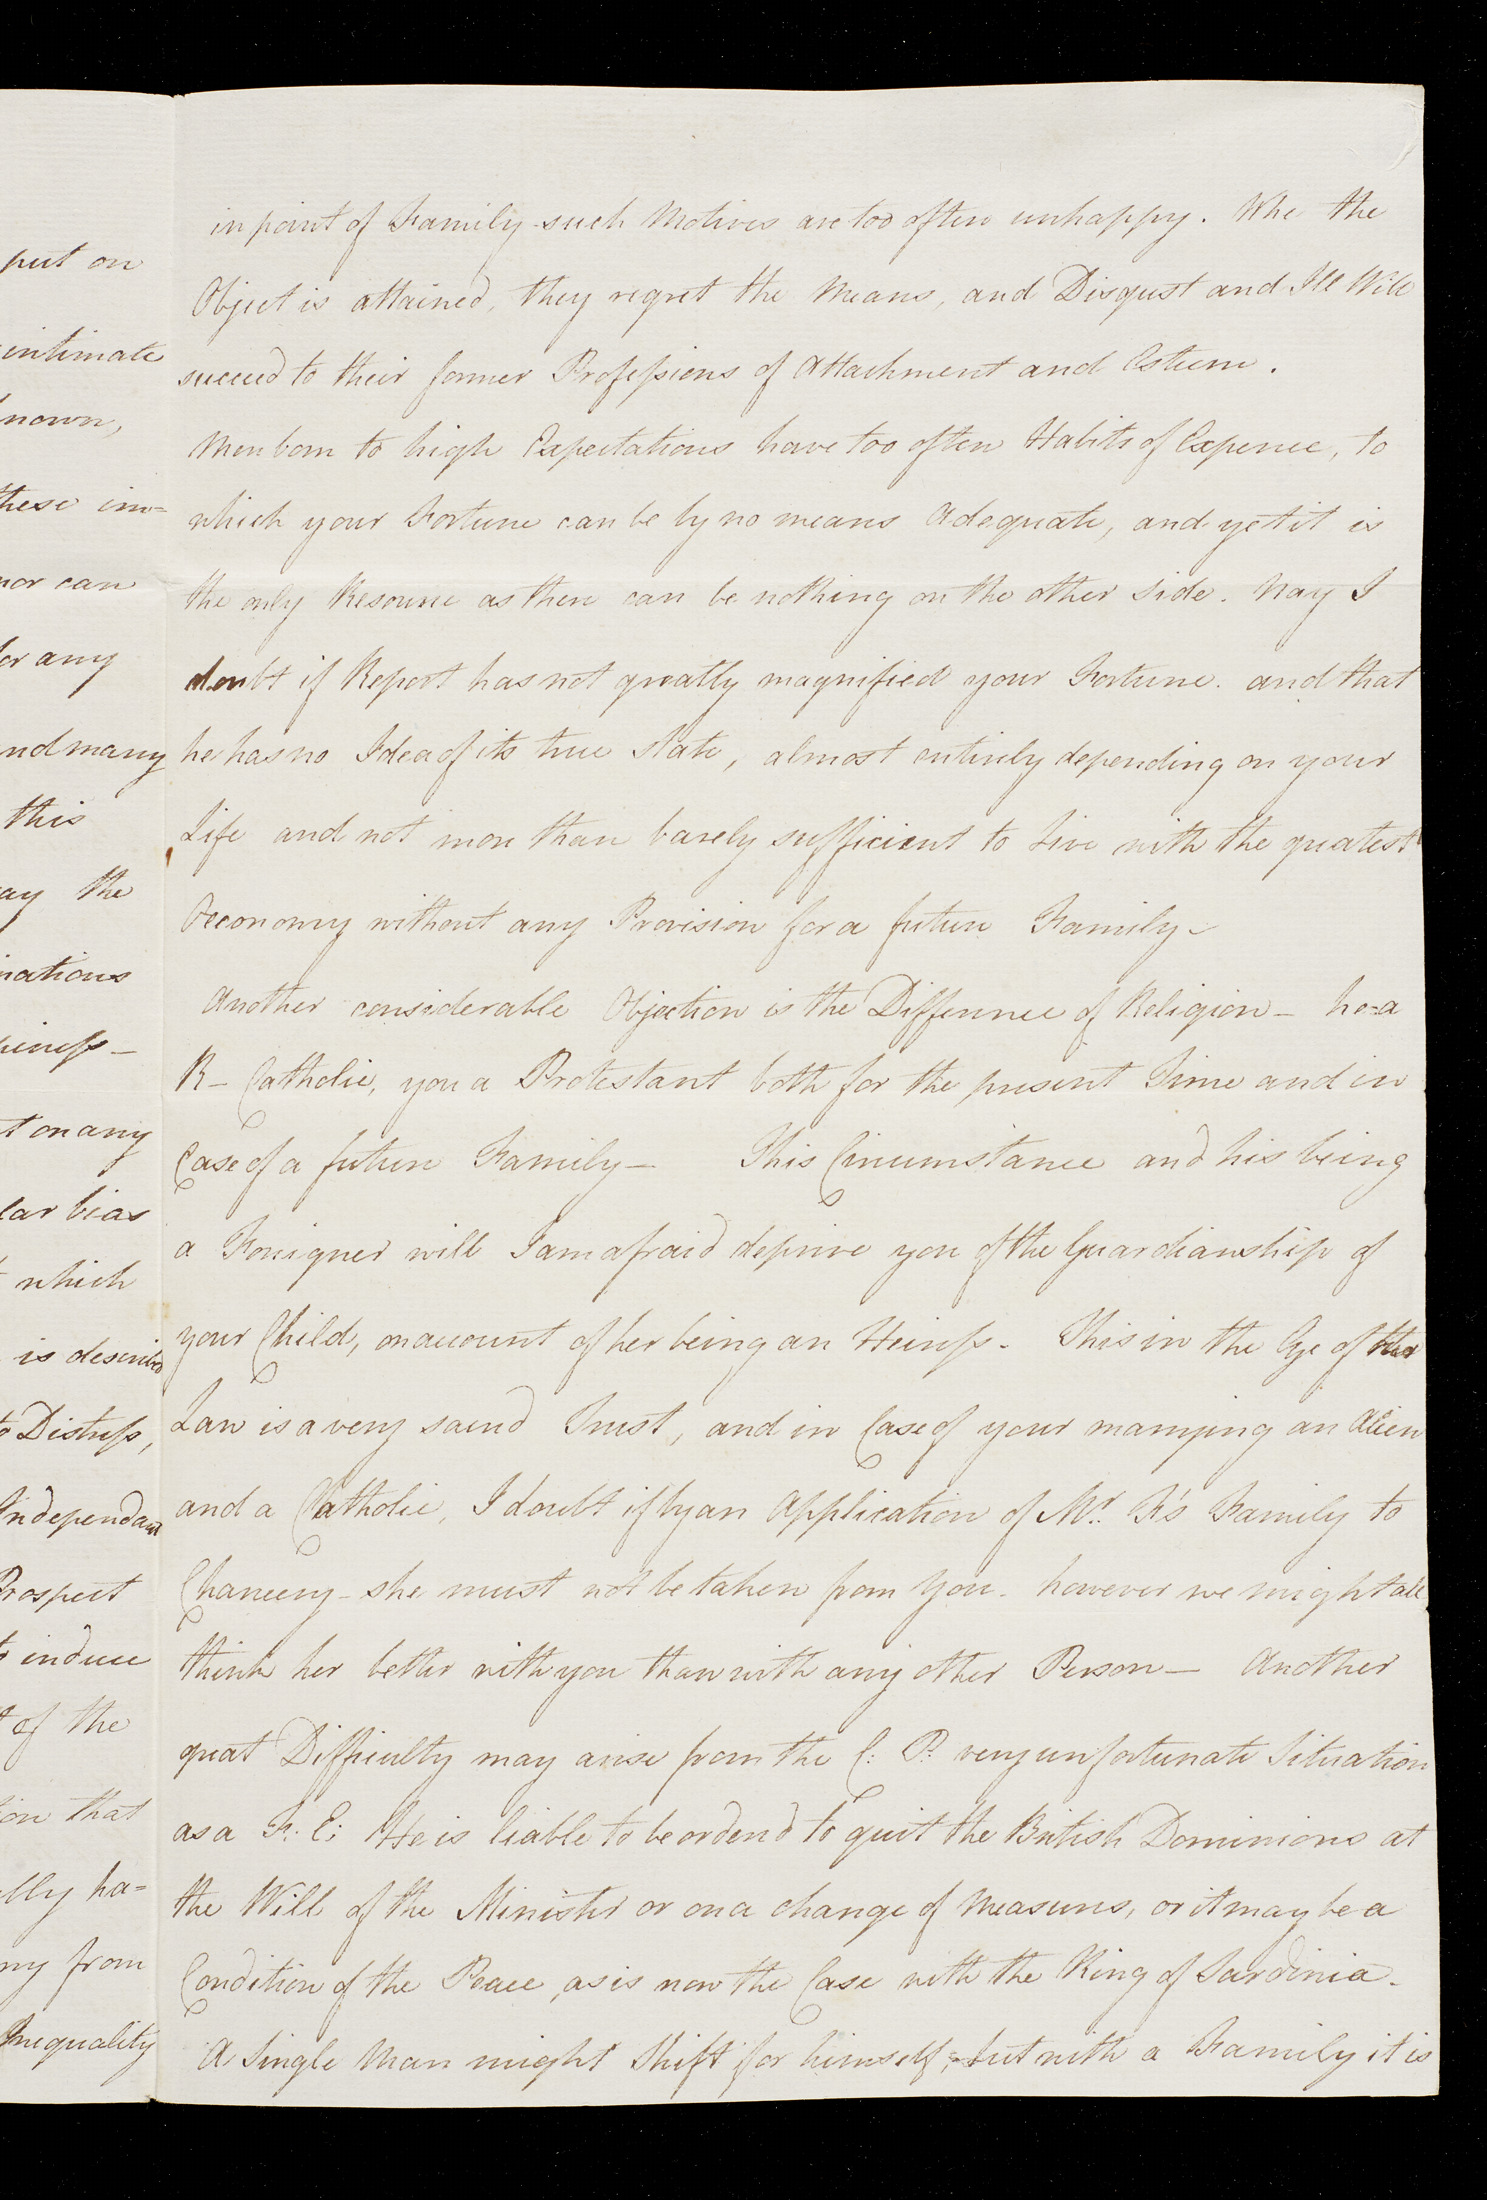 put on
intimate
nown,
these im=
nor can
for any
nd many
this
ay the
nations
piness—
t on any
lar bias
which
is described
to Distress,
Independant
Prospect
to induce
t of the
tion that
lly ha=
ny from
Inequality
in point of Family such Motives are too often unhappy. Whe the
Object is attained, they regret the Means, and Disgust and Ill Will
succeed to their former Professions of Attachment and Esteem.
Men born to high Expectations have too often Habits of Expence, to
which your Fortune can be by no means Adequate, and yet it is
the only Resource as there can be nothing on the other side. Nay I
doubt if Report has not greatly magnified your Fortune. and that
he has no Idea of its true state, almost entirely depending on your
Life and not more than barely sufficient to live with the greatest
Oeconomy without any Provision for a future Family—
Another considerable Objection is the Difference of Religion— he a
R— Catholic, you a Protestant both for the present Time and in
Case of a future Family— This Circumstance and his being
a Foreigner will I am afraid deprive you of the Guardianship of
your Child, on account of her being an Heiress. This in the Eye of the
Law is a very sacred Trust, and in Case of your marrying an Alien
and a Catholic, I doubt if by an Application of Mr. F's Family to
Chancery— she must not be taken from You. however we might all
think her better with you than with any other Person— Another
great Difficulty may arise from the C: P: very unfortunate Situation
as a F: E: He is liable to be ordered to quit the British Dominions at
the Will of the Minister or on a change of Measures, or it may be a
Condition of the Peace, as is now the Case with the King of Sardinia.
A Single Man might shift for himself, but with a Family it is